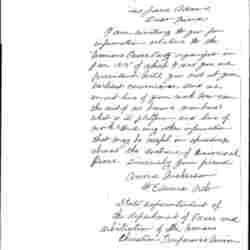 Miss Jane Addams
Dear friend
I am writing to you for
information relative to the
Woman's Peace Party organized in
Jan. 1915 of which I see you are
President. Will you not at your
earliest convenience send me
an outline of your work. How can
the aid of us leave members
what is its platform and line of
work. And any other information
that may be useful in speaking
about the work of Universal
Peace. Sincerely your friend
Anna Anderson
St Edward Neb
State superintendent of
the department of Peace and
arbitration of the Woman's
Christian Temperance Union